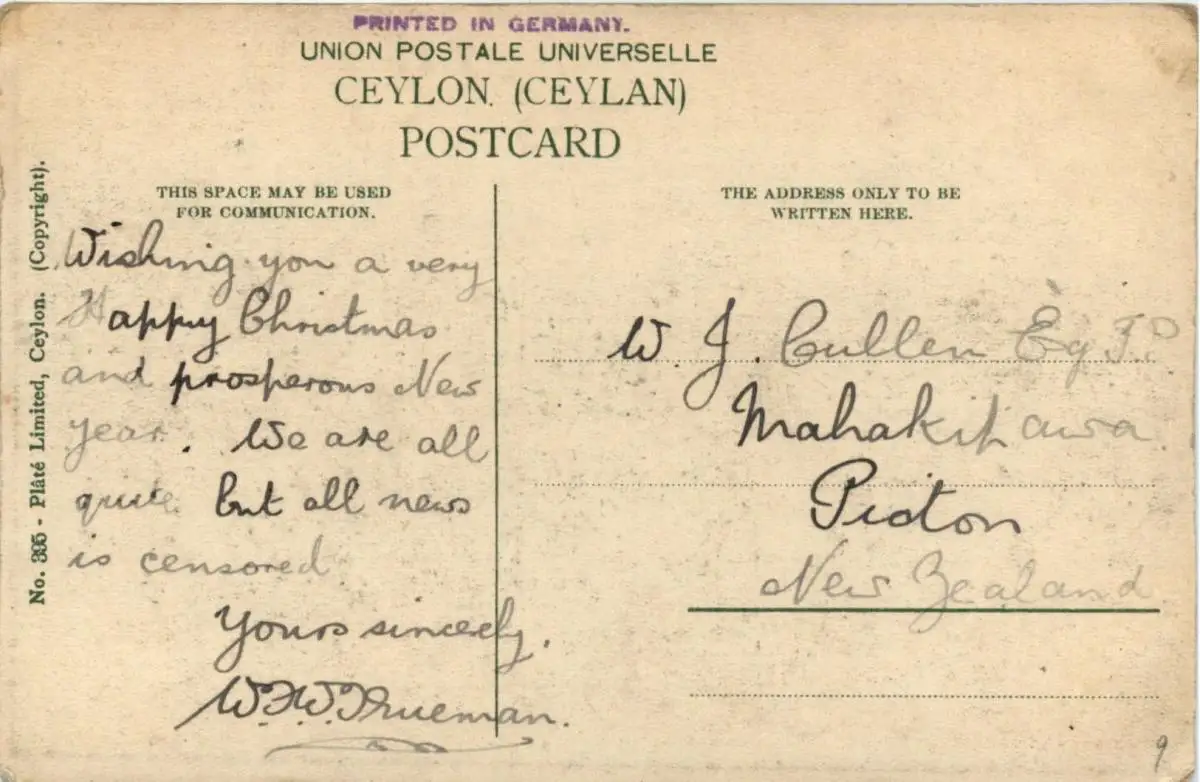 PRINTED IN GERMANY.
UNION POSTALE UNIVERSELLE
CEYLON. (CEYLAN)
POSTCARD
No. 395 - Plâté Limited, Ceylon. (Copyright).
THIS SPACE MAY BE USED
FOR COMMUNICATION.
Wishing you a very
Happy Christmas
and prosperous New
Year. We are all
quite but all news
is censored
Yours sincerely,
W.F.W. Trueman.
THE ADDRESS ONLY TO BE
WRITTEN HERE.
W. J. Cullen
Mahakipawa
Picton
New Zealand
9